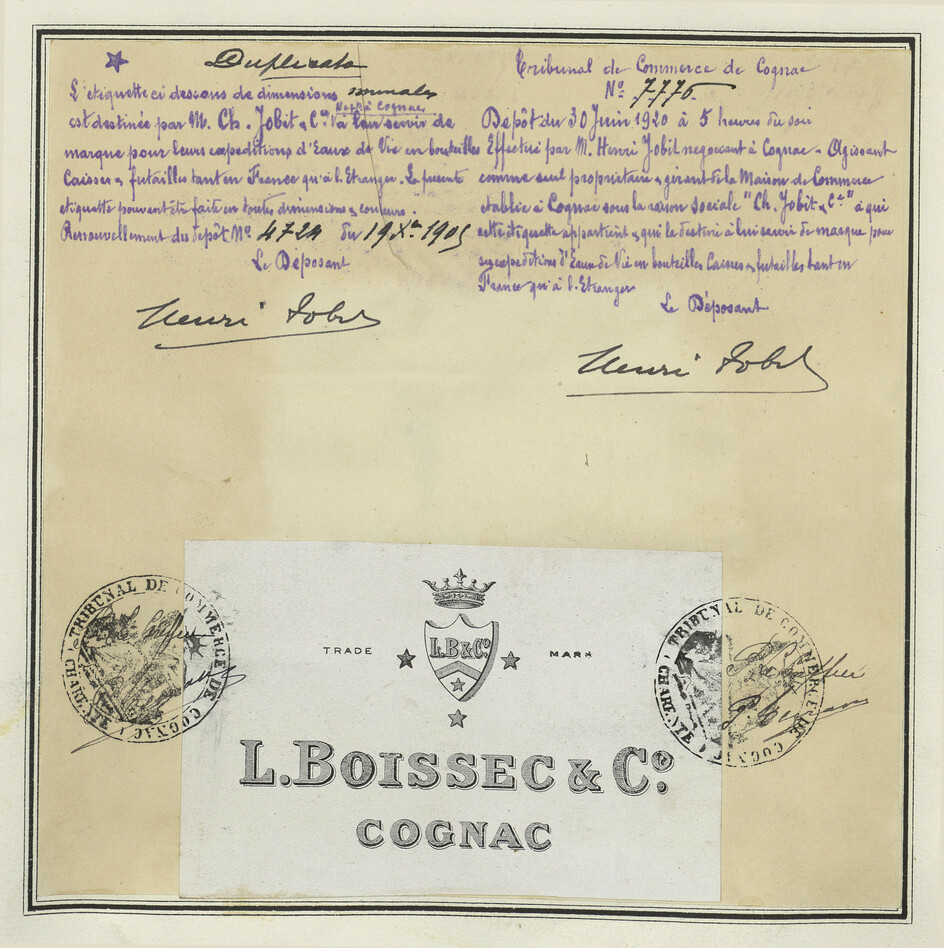 Duplicata
L'etiquette ci dessous de dimensions normales
est destinée par M. Ch. Jobit & Cie Negts à Cognac à leur servir de
marque pour leurs expeditions d'Eaux de Vie en bouteilles
Caisses & futailles tant en France qu'à l'Etranger. La presente
etiquette pouvant être faite en toutes dimensions & couleurs.
Renouvellement du depôt No 4724 du 19 Xbre 1905
Le Deposant
Henri Jobit
Tribunal de Commerce de Cognac
No 7775
Depôt du 30 Juin 1920 à 5 heures du soir
Effectué par M. Henri Jobit negociant à Cognac - Agissant
comme seul proprietaire & gérant de la Maison de Commerce
etablie à Cognac sous la raison sociale "Ch. Jobit & Cie" à qui
cette etiquette appartient & qui la destine à lui servir de marque pour
ses expeditions d'Eaux de Vie en bouteilles Caisses & futailles tant en
France qu'à l'Etranger
Le Déposant
Henri Jobit
TRIBUNAL DE COMMERCE DE COGNAC (CHARENTE)
TRADE L.B&Co. MARK
L. BOISSEC & Co.
COGNAC
TRIBUNAL DE COMMERCE DE COGNAC (CHARENTE)